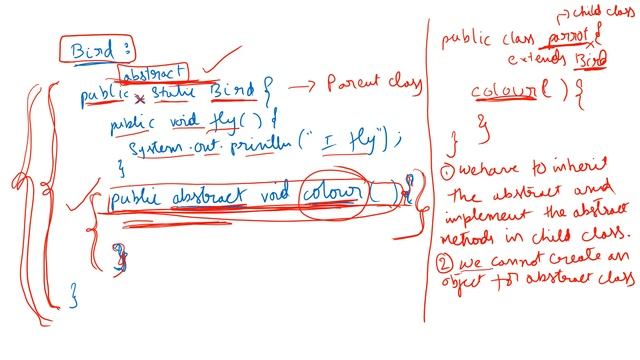 Bird:
abstract
public static Bird { → Parent class
public void fly() {
System.out.println(" I fly");
}
public abstract void colour() {
}
}
→ child class
public class parrot {
extends Bird
colour() {
}
}
① we have to inherit
the abstract and
implement the abstract
methods in child class.
② we cannot create an
object for abstract class